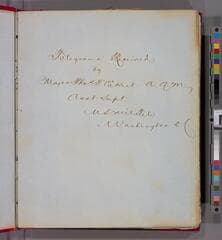 Telegrams Received
by
Major Tho. T. Eckert A. Q. M.
Asst Supt.
U. S. Mil. Tel.
Washington D C